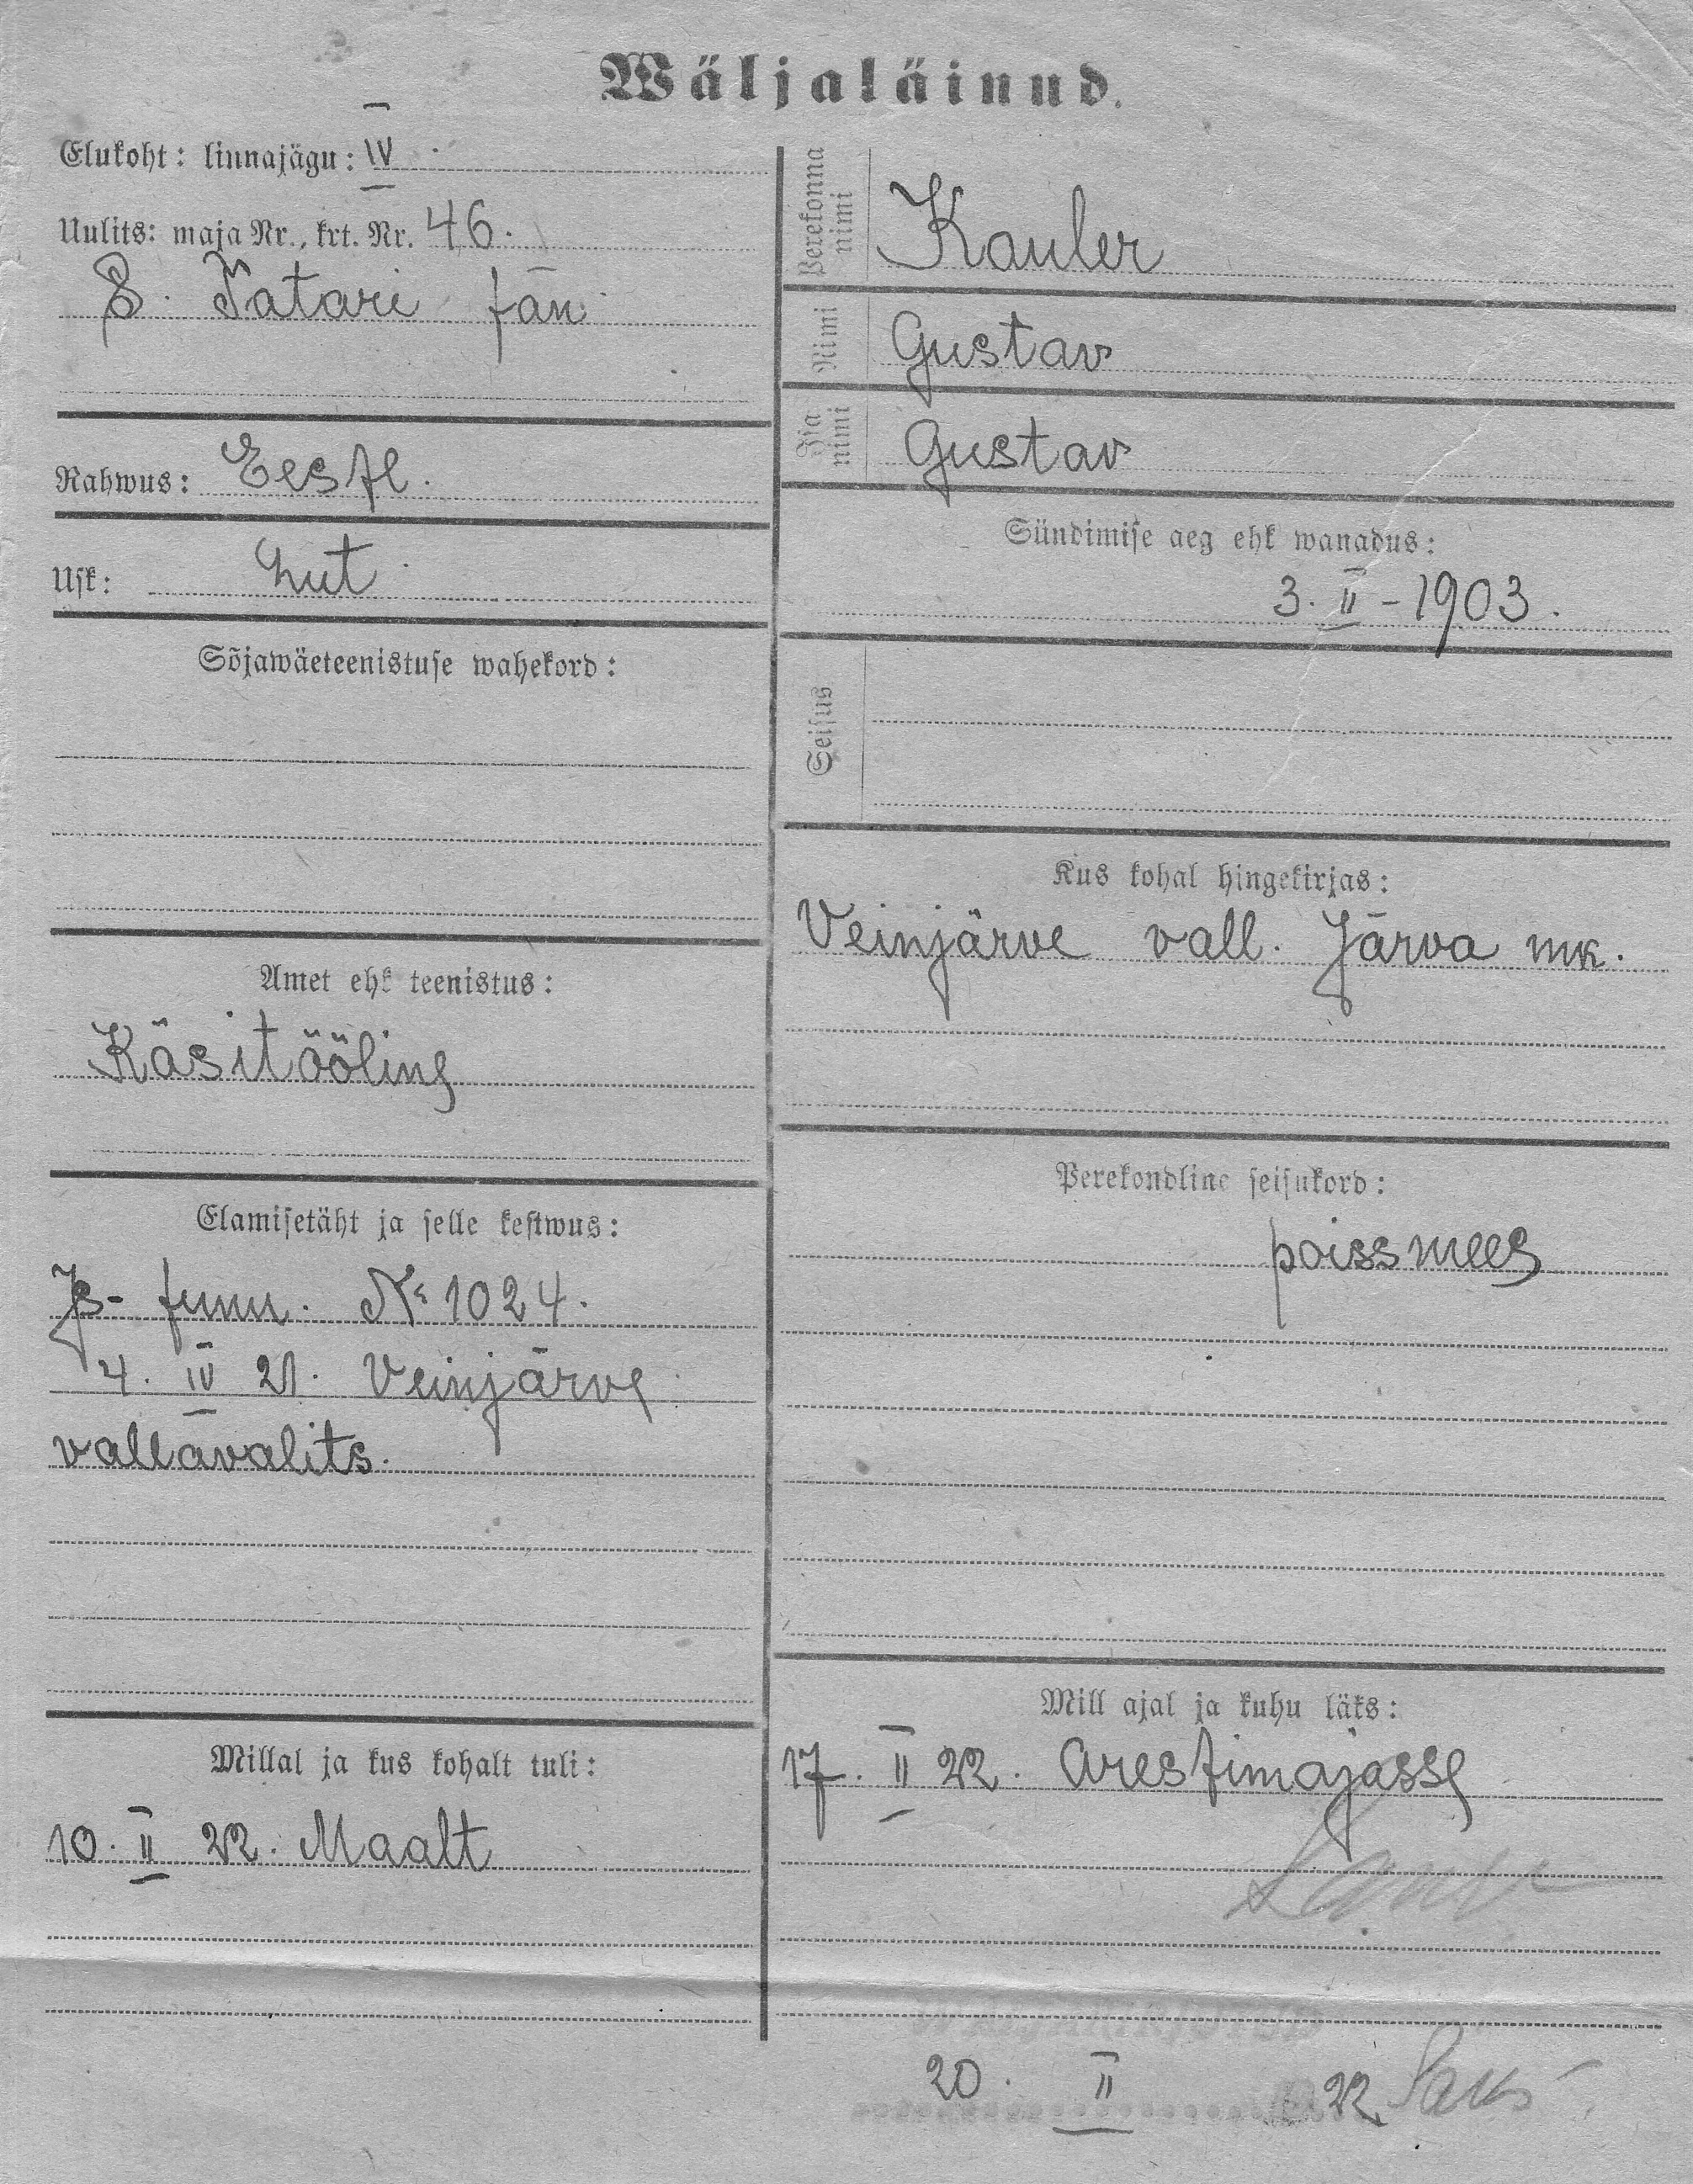 Wäljaläinud.
Elukoht: linnajägu: IV
Uulits: maja Nr., krt. Nr. 46.
S. Tatari tän
Rahwus: Eestl.
Usk: Lut
Sõjawäeteenistuse wahekord:
Amet ehk teenistus:
Käsitööline
Elamisetäht ja selle kestwus:
Is- tunn. № 1024.
4. IV 21. Veinjärve
vallavalits.
Millal ja kus kohalt tuli:
10. II 22. Maalt
Perekonna
nimi
Kauler
Nimi
Gustav
Isa
nimi
Gustav
Sündimise aeg ehk wanadus:
3. II - 1903.
Seisus
Kus kohal hingekirjas:
Veinjärve vall. Järva mk.
Perekondline seisukord:
poissmees
Mill ajal ja kuhu läks:
17. II 22. Arestimajasse
20. II 22